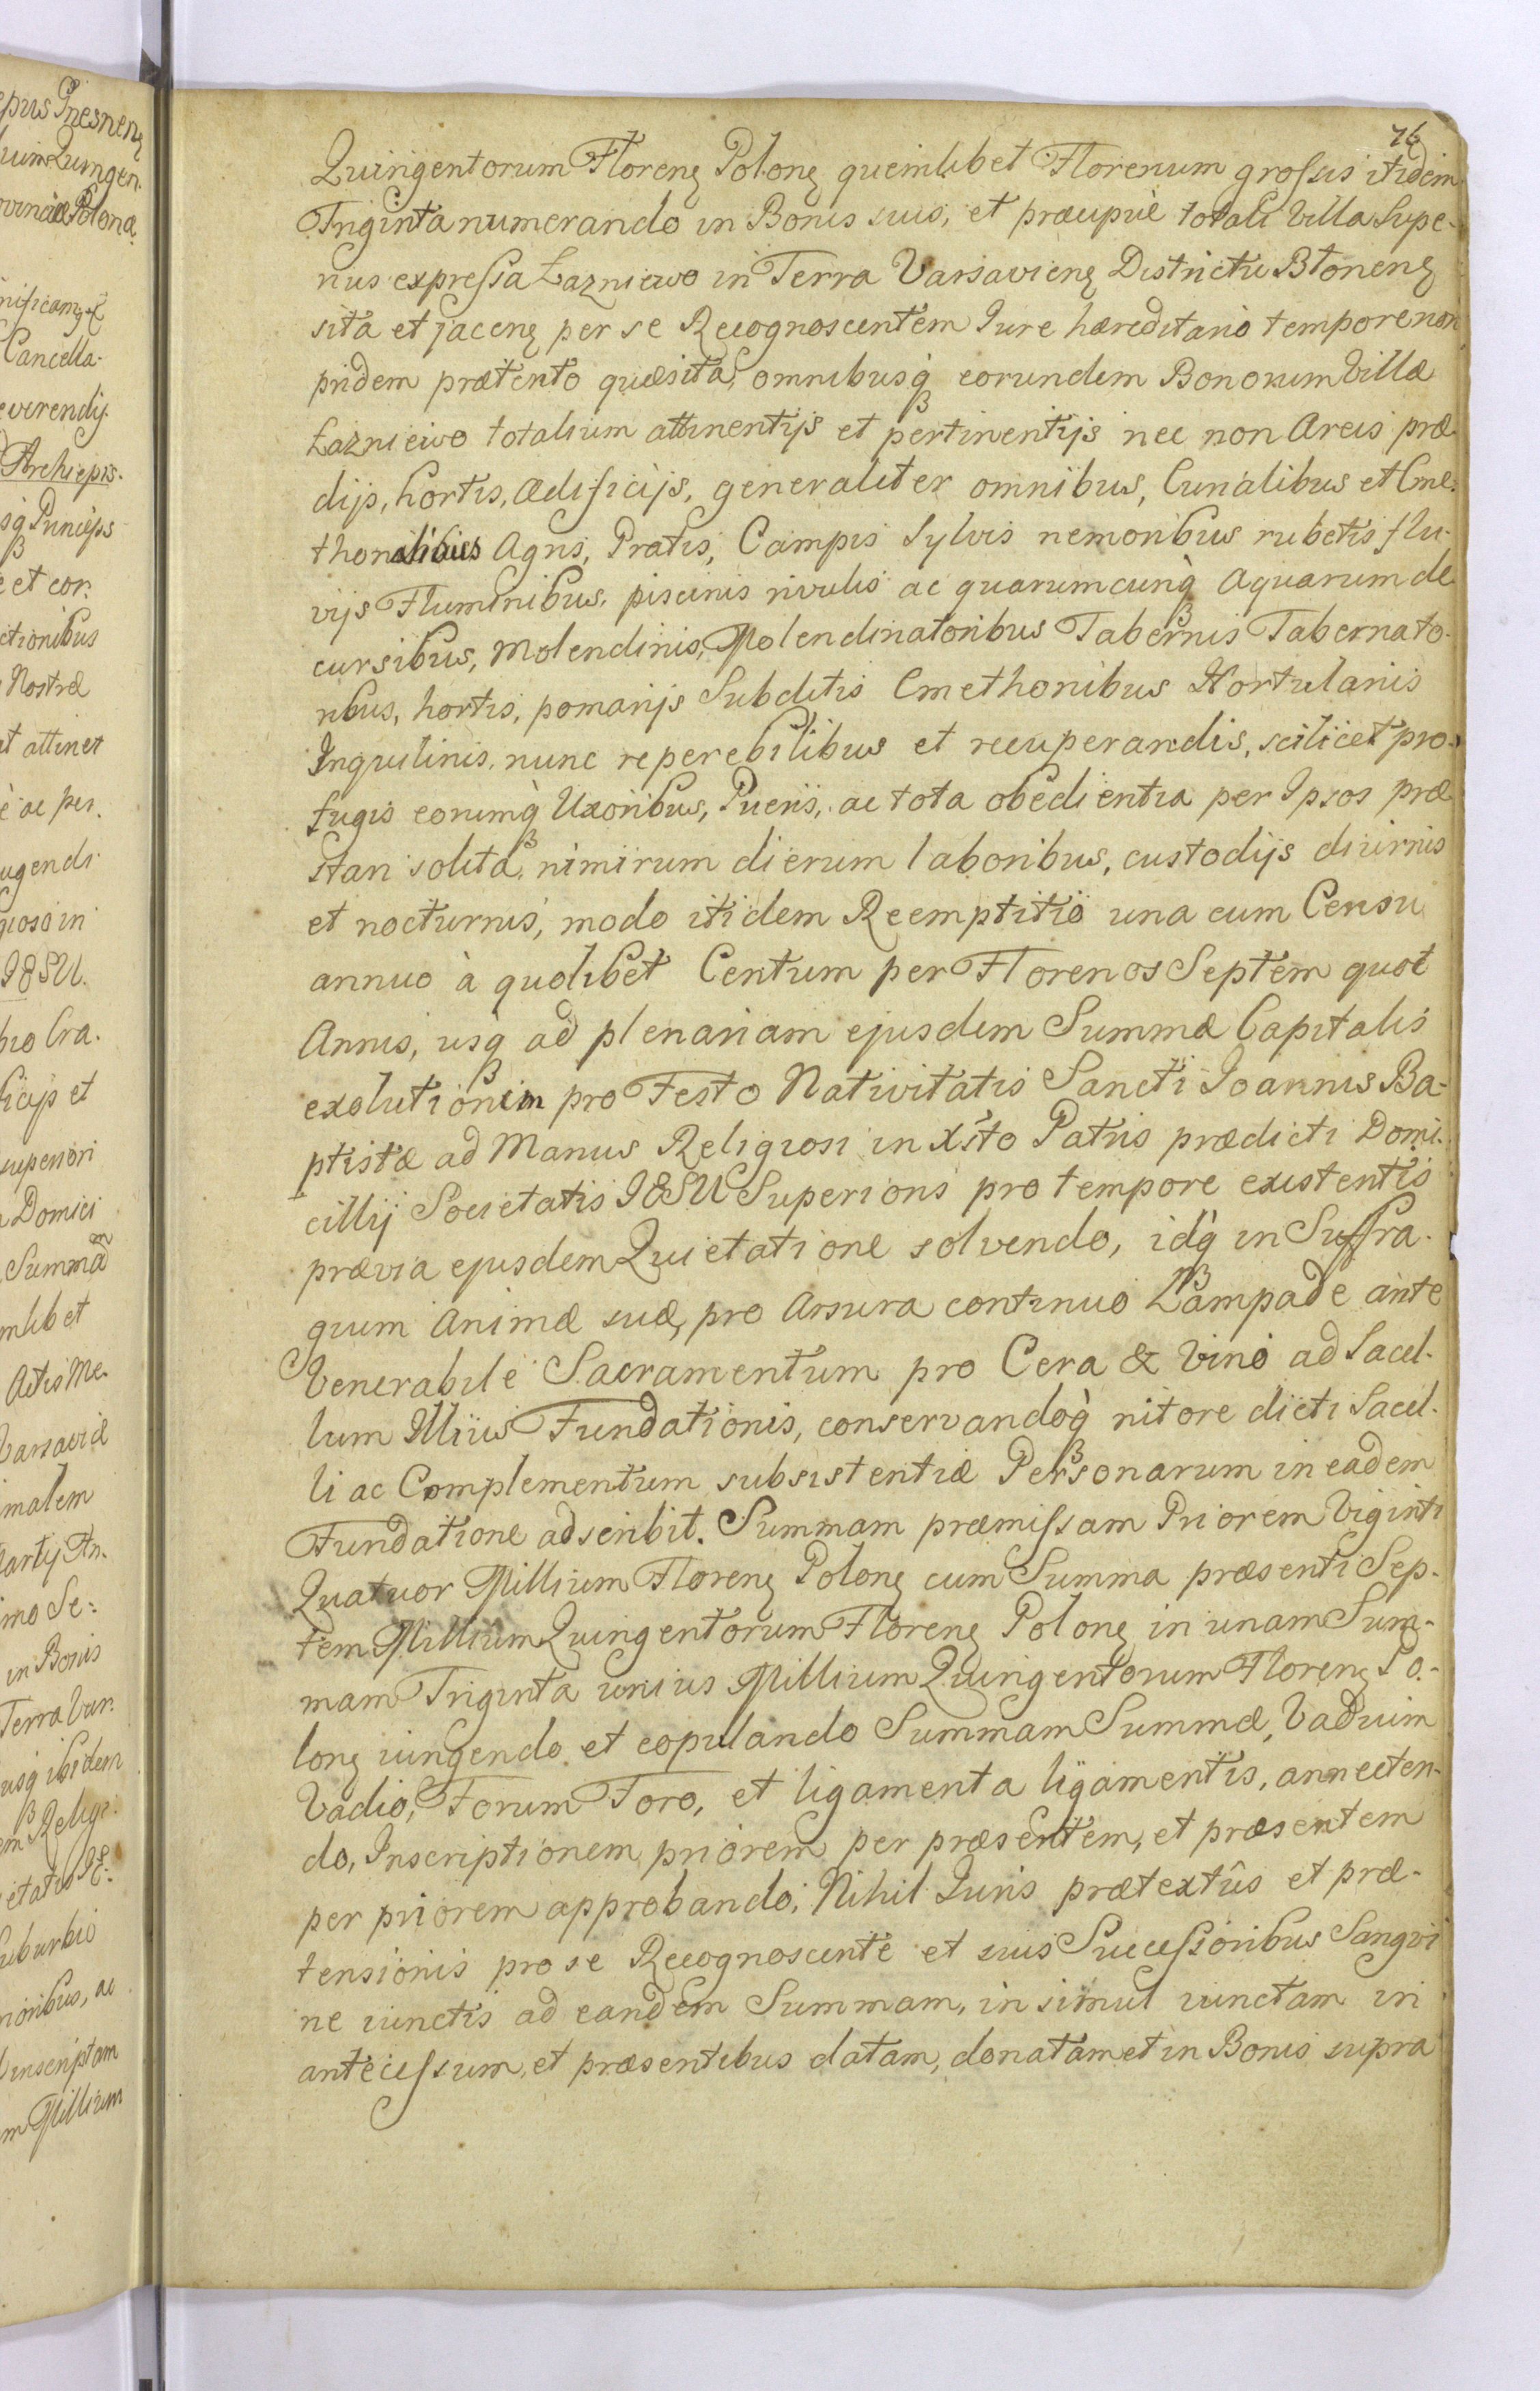 epus Gnesnenȝ
Quingen-
Polonæ
Cancella-
everendj
Archiepis-
sq̀ʒ Princeps
e et cor-
ctionibus
Nostræ
attinet
è ac per-
ugendi
giosò in
IESU.
bio Cra-
superiori
Domici
Summam
mlibet
Actis Me-
Varsaviæ
malem
Martij An-
imo Se:
in Bonis
Terra Var-
usq̀ʒ ibidem
em Religi-
etatis IE-
Suburbiò
rioribus, ac
inscriptam
m Millium
76
Quingentorum Florenȝ Polonȝ quemlibet Florenum grossis itidem
Triginta numerando in Bonis suis, et præcipuè totali Villa Supe-
rius expressa Łazniewo in Terra Varsavienȝ Districtu Błonenȝ
sita et jacenȝ per se Recognoscentem Iure hæreditariò tempore non
pridem prætento quæsita, omnibusq̀ʒ eorundem Bonorum Villæ
Łazniewo totalium attinentijs et pertinentijs nec non Areis præ-
dijs, hortis, ædificijs, generaliter omnibus, Curialibus et Cme-
thonalibus Agris, Pratis, Campis Sylvis nemoribus rubetis flu-
vijs Fluminibus, piscinis rivulis ac quarumcunq̀ʒ Aquarum de-
cursibus, Molendinis, Molendinatoribus Tabernis Tabernato-
ribus, hortis, pomarijs Subditis Cmethonibus Hortulanis
Inquilinis, nunc reperebilibus et recuperandis, scilicet pro-
fugis eorumq̀ʒ Uxoribus, Pueris, ac tota obedientia per Ipsos præ-
stari solita, nimirum dierum laboribus, custodijs diurnis
et nocturnis, modo itidem Reemptitiò una cum Censu
annuo à quolibet Centum per Florenos Septem quot
Annis, usq̀ʒ ad plenariam ejusdem Summæ Capitalis
exolutionem pro Festo Nativitatis Sancti Joannis Ba-
ptistæ ad Manus Religiosi in Xs̃to Patris prædicti Domi-
cillij Societatis IESU Superioris pro tempore existentis
prævia ejusdem Quietatione solvendo, idq̀ʒ in Suffra-
gium Animæ suæ, pro Arsura continuo Lampade ante
Venerabile Sacramentum pro Cera & Vino ad Sacel-
lum Illius Fundationis, conservandoq̀ʒ nitore dicti Sacel-
li ac Complementum subsistentiæ Personarum in eadem
Fundatione adscribit. Summam præmissam Priorem Viginti
Quatuor Millium Florenȝ Polonȝ cum Summa præsenti Sep-
tem Millium Quingentorum Florenȝ Polonȝ in unam Sum-
mam Triginta unius Millium Quingentorum Florenȝ Po-
lonȝ iungendo et copulando Summam Summæ, Vadium
Vadio, Forum Foro, et ligamenta ligamentis, annecten-
do, Inscriptionem priorem per præsentem, et præsentem
per priorem approbando, Nihil Iuris prætextûs et præ-
tensionis pro se Recognoscente et suis Successoribus Sangvi
ne iunctis ad eandem Summam, insimul iunctam in
antecessum, et præsentibus datam, donatam et in Bonis supra